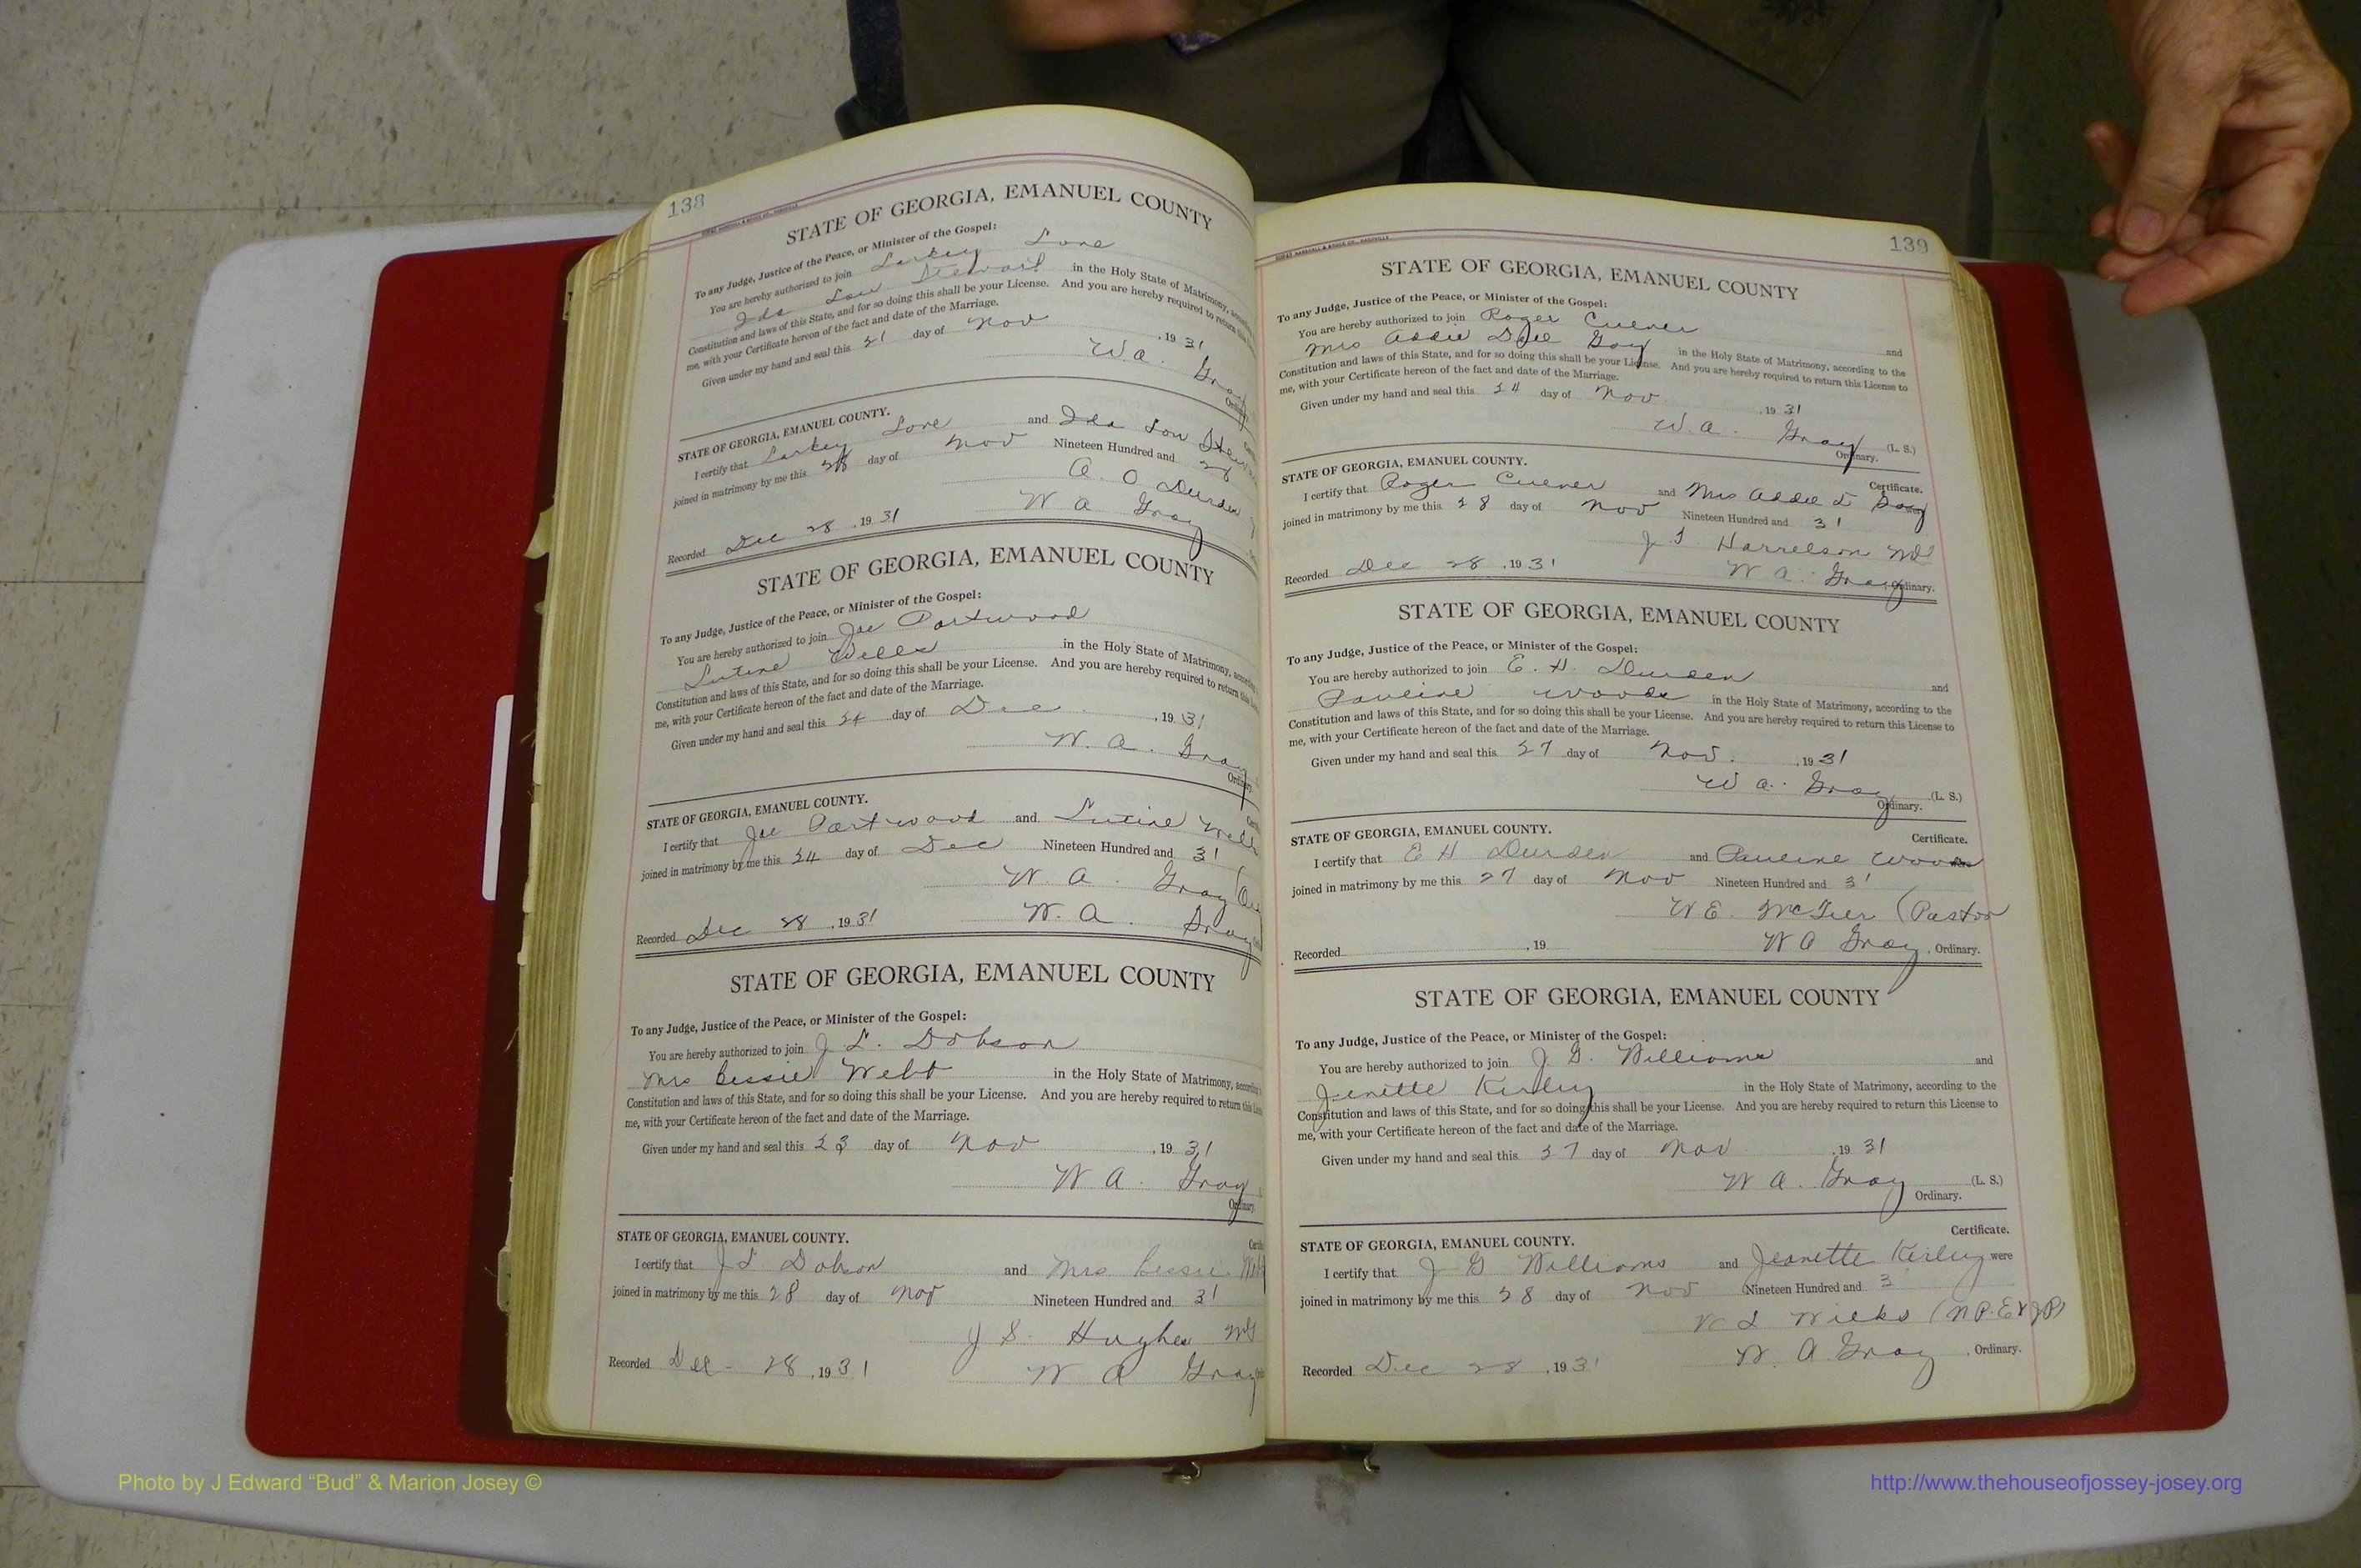 138
STATE OF GEORGIA, EMANUEL COUNTY
To any Judge, Justice of the Peace, or Minister of the Gospel:
You are hereby authorized to join Larkey Lone
Ida Lou Stewart in the Holy State of Matrimony,
Constitution and laws of this State, and for so doing this shall be your License. And you are hereby required to return
me, with your Certificate hereon of the fact and date of the Marriage.
Given under my hand and seal this 21 day of Nov , 19 31
W A. Gray
STATE OF GEORGIA, EMANUEL COUNTY.
I certify that Larkey Lone and Ida Lou
joined in matrimony by me this day of Nov Nineteen Hundred and
A. O Durden
Recorded Dec 28 , 19 31 W A Gray
STATE OF GEORGIA, EMANUEL COUNTY
To any Judge, Justice of the Peace, or Minister of the Gospel:
You are hereby authorized to join Joe Portwood
Lutine Wells in the Holy State of Matrimony,
Constitution and laws of this State, and for so doing this shall be your License. And you are hereby required to return this
me, with your Certificate hereon of the fact and date of the Marriage.
Given under my hand and seal this 24 day of Dec , 19 31
W. A. Gray
STATE OF GEORGIA, EMANUEL COUNTY.
I certify that Joe Portwood and Lutine Wells
joined in matrimony by me this 24 day of Dec Nineteen Hundred and 31
W. A. Gray
Recorded Dec 28 , 19 31 W. A. Gray
STATE OF GEORGIA, EMANUEL COUNTY
To any Judge, Justice of the Peace, or Minister of the Gospel:
You are hereby authorized to join J. L. Dobson
Mrs Bessie Webb in the Holy State of Matrimony,
Constitution and laws of this State, and for so doing this shall be your License. And you are hereby required to return this
me, with your Certificate hereon of the fact and date of the Marriage.
Given under my hand and seal this 23 day of Nov , 19 31
W A. Gray
Ordinary.
STATE OF GEORGIA, EMANUEL COUNTY.
I certify that J L Dobson and Mrs Bessie
joined in matrimony by me this 28 day of Nov Nineteen Hundred and 31
J S. Hughes MG
Recorded Dec - 28 , 19 31 W A Gray
139
STATE OF GEORGIA, EMANUEL COUNTY
To any Judge, Justice of the Peace, or Minister of the Gospel:
You are hereby authorized to join Roger Culver and
Mrs Addie Dell Gay in the Holy State of Matrimony, according to the
Constitution and laws of this State, and for so doing this shall be your License. And you are hereby required to return this License to
me, with your Certificate hereon of the fact and date of the Marriage.
Given under my hand and seal this 24 day of Nov. , 19 31
W. A. Gray (L. S.)
Ordinary.
STATE OF GEORGIA, EMANUEL COUNTY. Certificate.
I certify that Roger Culver and Mrs Addie D Gay were
joined in matrimony by me this 28 day of Nov Nineteen Hundred and 31
Harrelson MG
Recorded Dec 28 , 19 31 W A. Gray Ordinary.
STATE OF GEORGIA, EMANUEL COUNTY
To any Judge, Justice of the Peace, or Minister of the Gospel:
You are hereby authorized to join E. H. Durden and
Pauline Woods in the Holy State of Matrimony, according to the
Constitution and laws of this State, and for so doing this shall be your License. And you are hereby required to return this License to
me, with your Certificate hereon of the fact and date of the Marriage.
Given under my hand and seal this 27 day of Nov. , 19 31
W A. Gray (L. S.)
Ordinary.
STATE OF GEORGIA, EMANUEL COUNTY. Certificate.
I certify that E H Durden and Pauline Woods
joined in matrimony by me this 27 day of Nov Nineteen Hundred and 31
W E. McTier (Pastor
Recorded , 19 W A Gray , Ordinary.
STATE OF GEORGIA, EMANUEL COUNTY
To any Judge, Justice of the Peace, or Minister of the Gospel:
You are hereby authorized to join J. G. Williams and
Jenette Kirley in the Holy State of Matrimony, according to the
Constitution and laws of this State, and for so doing this shall be your License. And you are hereby required to return this License to
me, with your Certificate hereon of the fact and date of the Marriage.
Given under my hand and seal this 27 day of Nov , 19 31
W A. Gray (L. S.)
Ordinary.
STATE OF GEORGIA, EMANUEL COUNTY. Certificate.
I certify that J G Williams and Jeanette Kirley were
joined in matrimony by me this 28 day of Nov Nineteen Hundred and 3
W L Wicks (N.P. Ex JP)
Recorded Dec 28 , 19 31 W. A. Gray , Ordinary.
Photo by J Edward “Bud” & Marion Josey ©
http://www.thehouseofjossey-josey.org